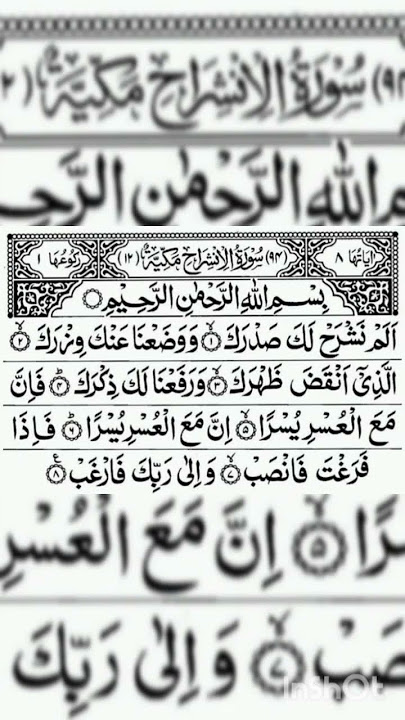 (۹۴) سُوْرَةُ الْاِنْشِرَاحِ مَكِّيَّةٌ
مِ اللهِ الرَّحْمٰنِ الرَّحِيْـ
اٰيَاتُهَا ٨ (۹۴) سُوْرَةُ الْاِنْشِرَاحِ مَكِّيَّةٌ (۱۲) رُكُوْعُهَا ١
بِسْمِ اللهِ الرَّحْمٰنِ الرَّحِيْمِ
اَلَمْ نَشْرَحْ لَكَ صَدْرَكَ ۙ۱ وَوَضَعْنَا عَنْكَ وِزْرَكَ ۙ۲
الَّذِيْۤ اَنْقَضَ ظَهْرَكَ ۙ۳ وَرَفَعْنَا لَكَ ذِكْرَكَ ؕ۴ فَاِنَّ
مَعَ الْعُسْرِ يُسْرًا ۙ۵ اِنَّ مَعَ الْعُسْرِ يُسْرًا ؕ۶ فَاِذَا
فَرَغْتَ فَانْصَبْ ۙ۷ وَاِلٰى رَبِّكَ فَارْغَبْ ۸
رًا ۙ۵ اِنَّ مَعَ الْعُسْرِ
صَبْ ۙ۷ وَاِلٰى رَبِّكَ
InShot